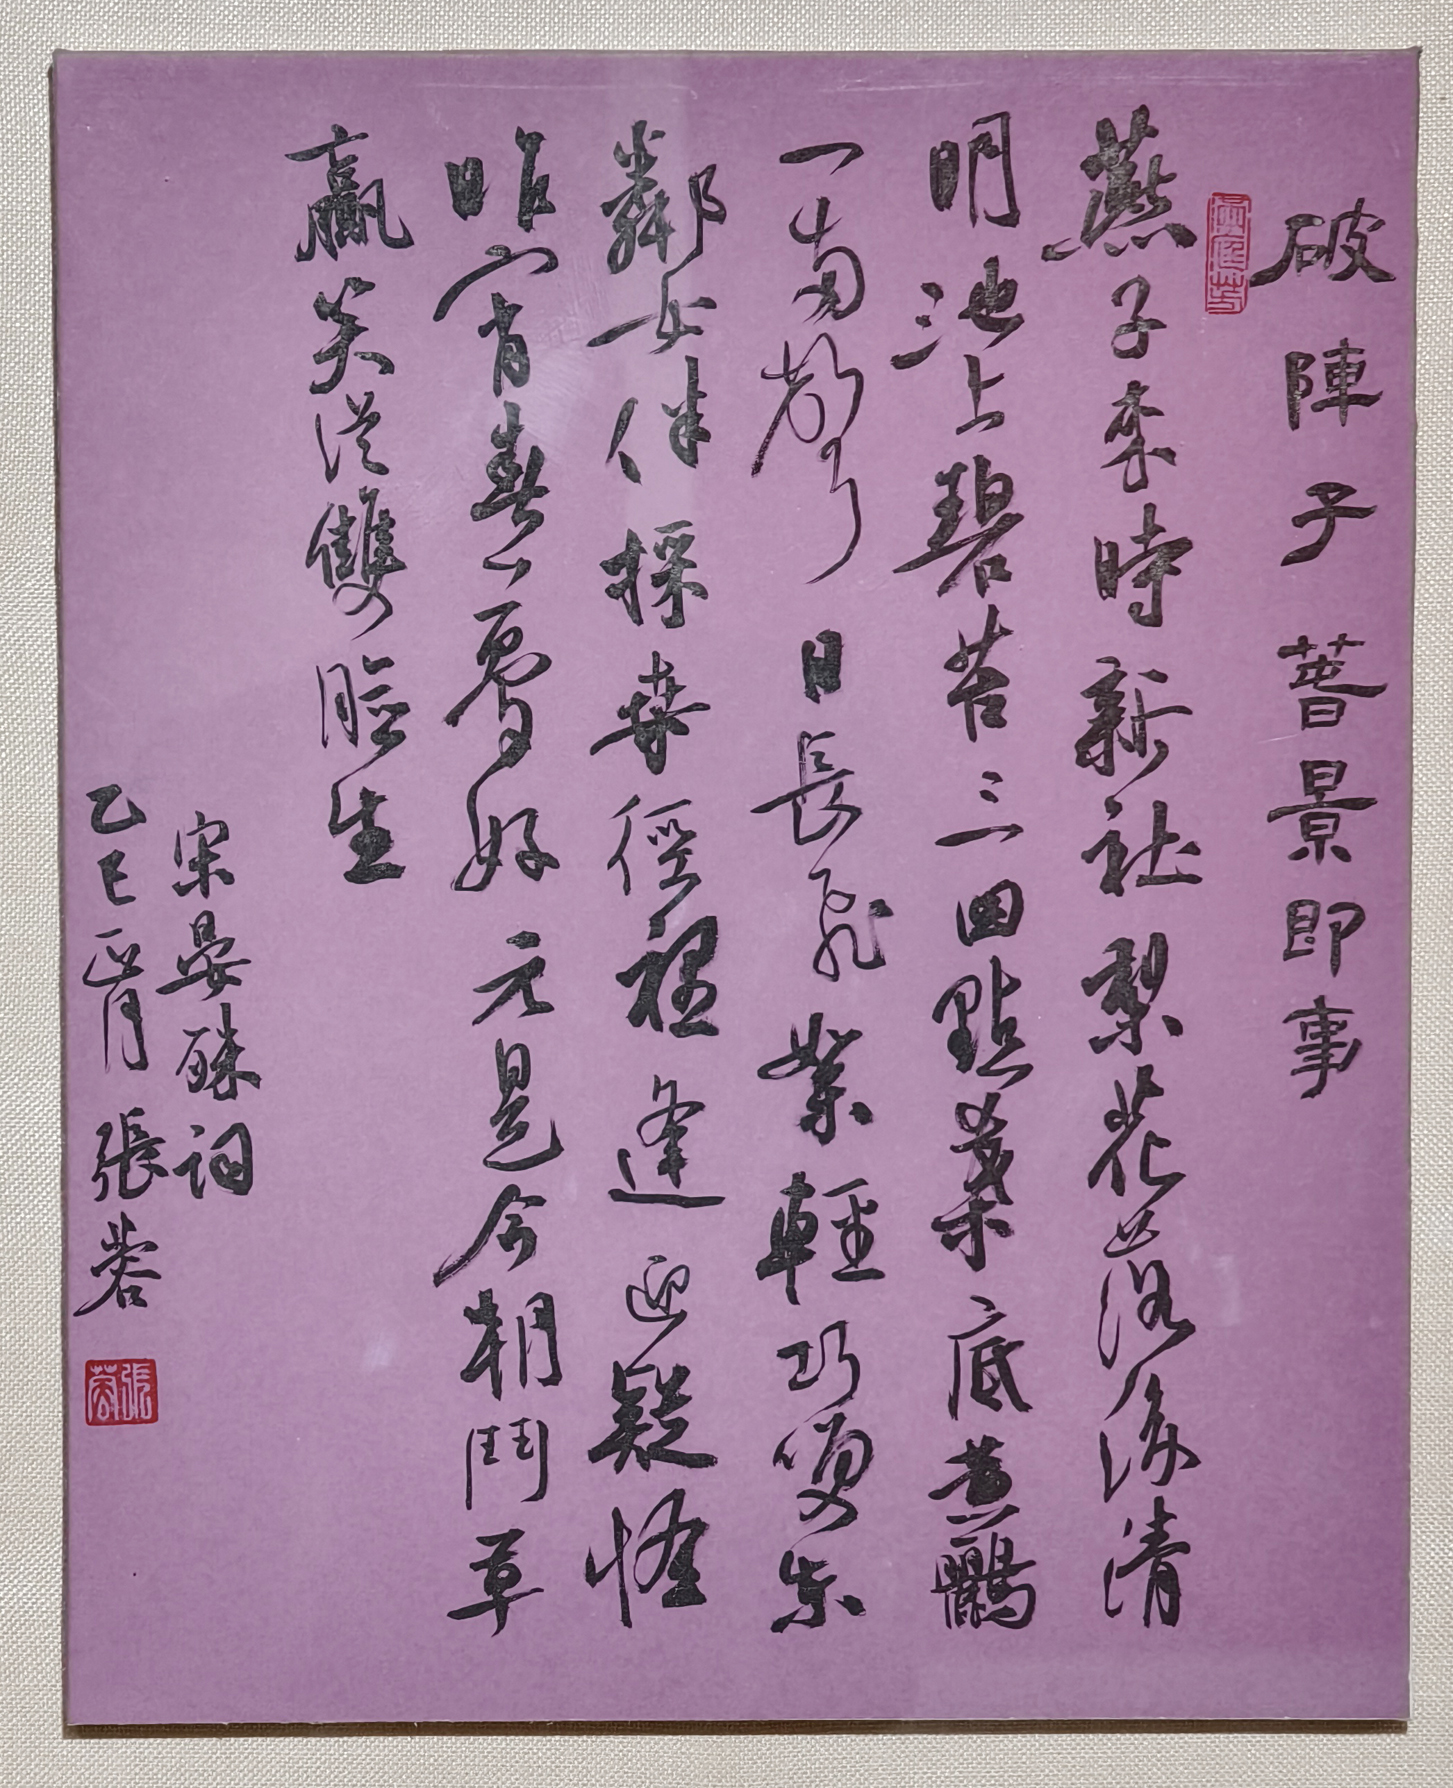 破陣子萅景即事
燕子來時新社梨花落後清
明池上碧苔三四點葉底黃鸝
一兩聲日長飛絮輕巧笑東
鄰女伴採桑徑裡逢迎疑怪
昨宵春夢好元是今朝鬥草
贏笑從雙臉生
宋晏殊詞
乙巳正月張蓉
張蓉